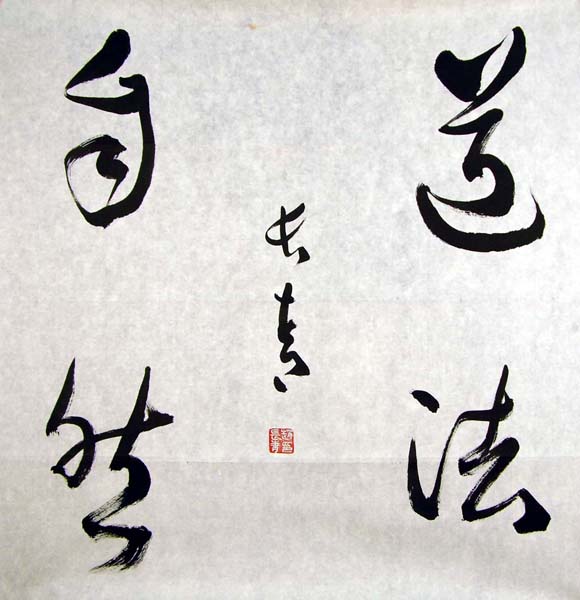 道法
自然
长